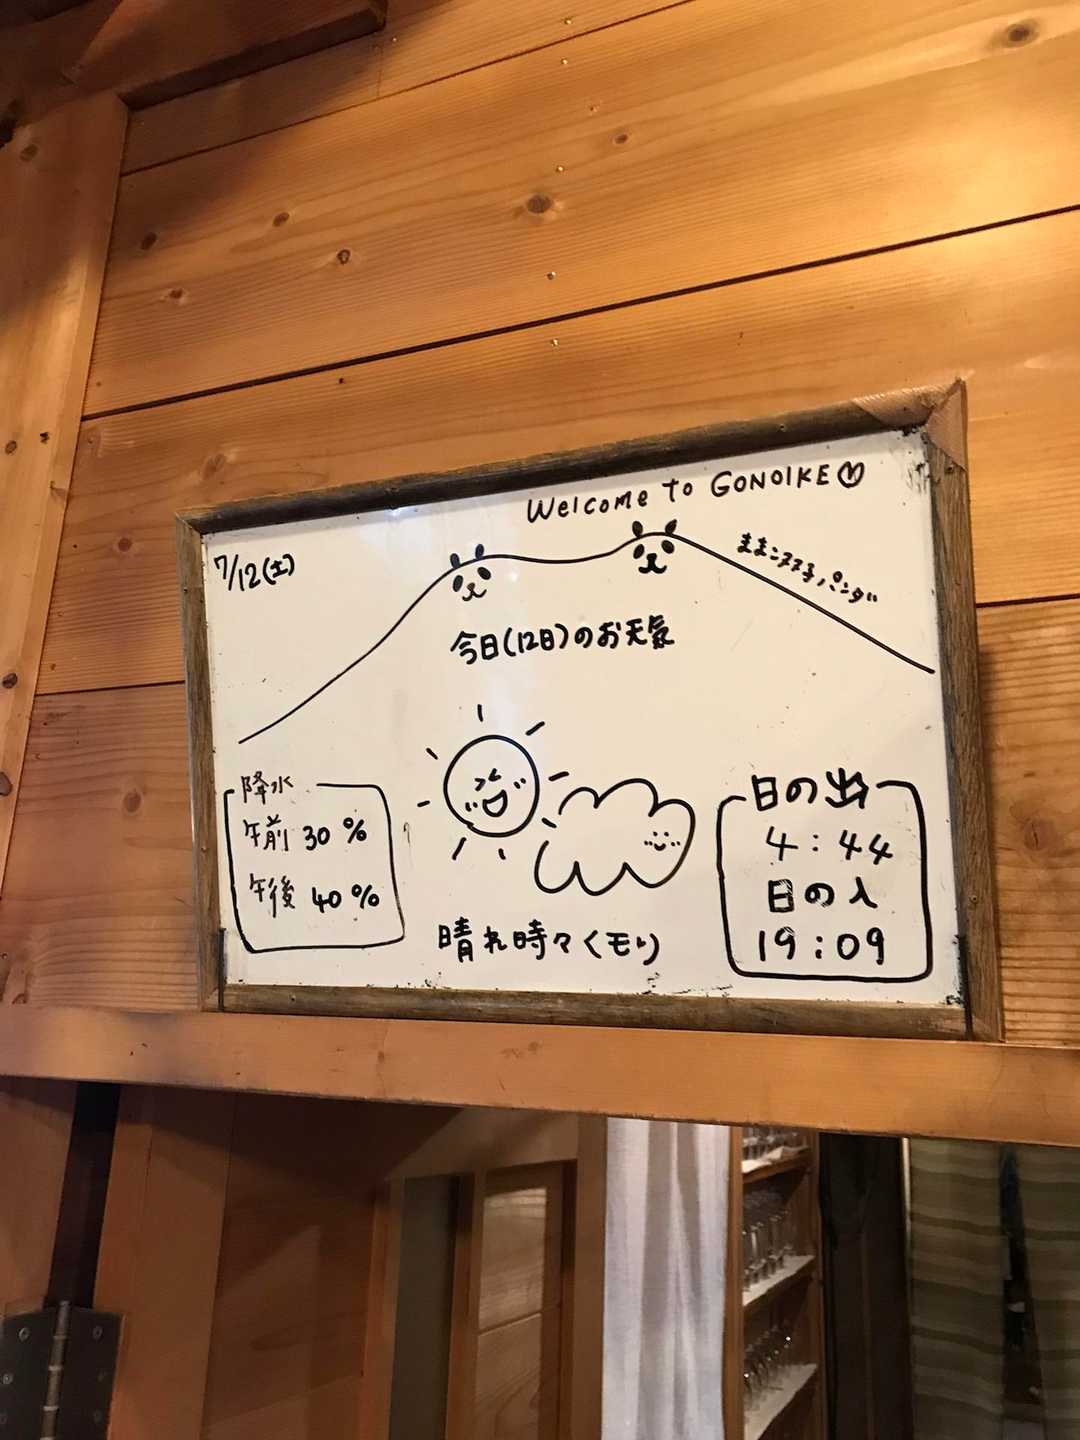 Welcome to GONOIKE
7/12(土)
今日(12日)のお天気
降水
午前 30 %
午後 40 %
晴れ時々くもり
日の出
4:44
日の入
19:09